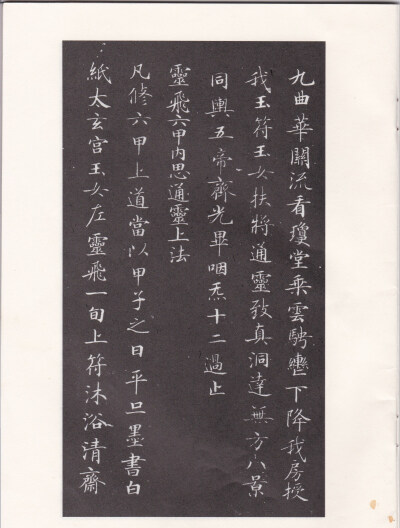 九曲華關流看瓊堂乘雲騁轡下降我房授
我玉符玉女扶將通靈致真洞達無方八景
同輿五帝齊光畢咽炁十二過止
靈飛六甲內思通靈上法
凡修六甲上道當以甲子之日平旦墨書白
紙太玄宮玉女左靈飛一旬上符沐浴清齋